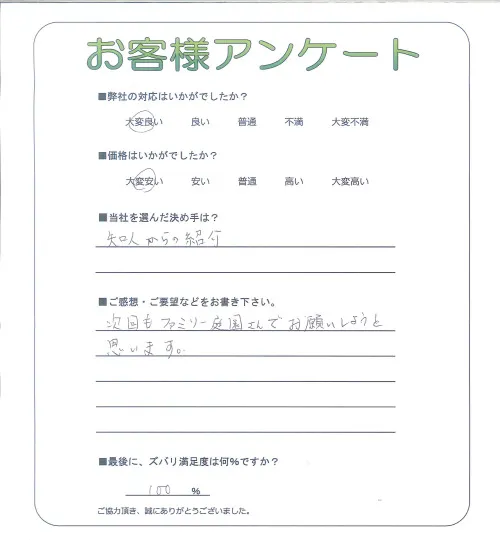 お客様アンケート
■弊社の対応はいかがでしたか？
大変良い 良い 普通 不満 大変不満
■価格はいかがでしたか？
大変安い 安い 普通 高い 大変高い
■当社を選んだ決め手は？
知人からの紹介
■ご感想・ご要望などをお書き下さい。
次回もファミリー庭園さんでお願いしようと
思います。
■最後に、ズバリ満足度は何%ですか？
100 %
ご協力頂き、誠にありがとうございました。